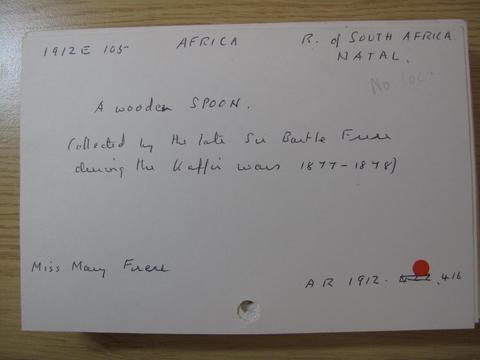 1912 E 105 AFRICA R. of SOUTH AFRICA.
NATAL.
No loc.
A wooden SPOON.
Collected by the late Sir Bartle Frere
during the Kaffir wars 1877-1878)
Miss Mary Frere
A R 1912. .416